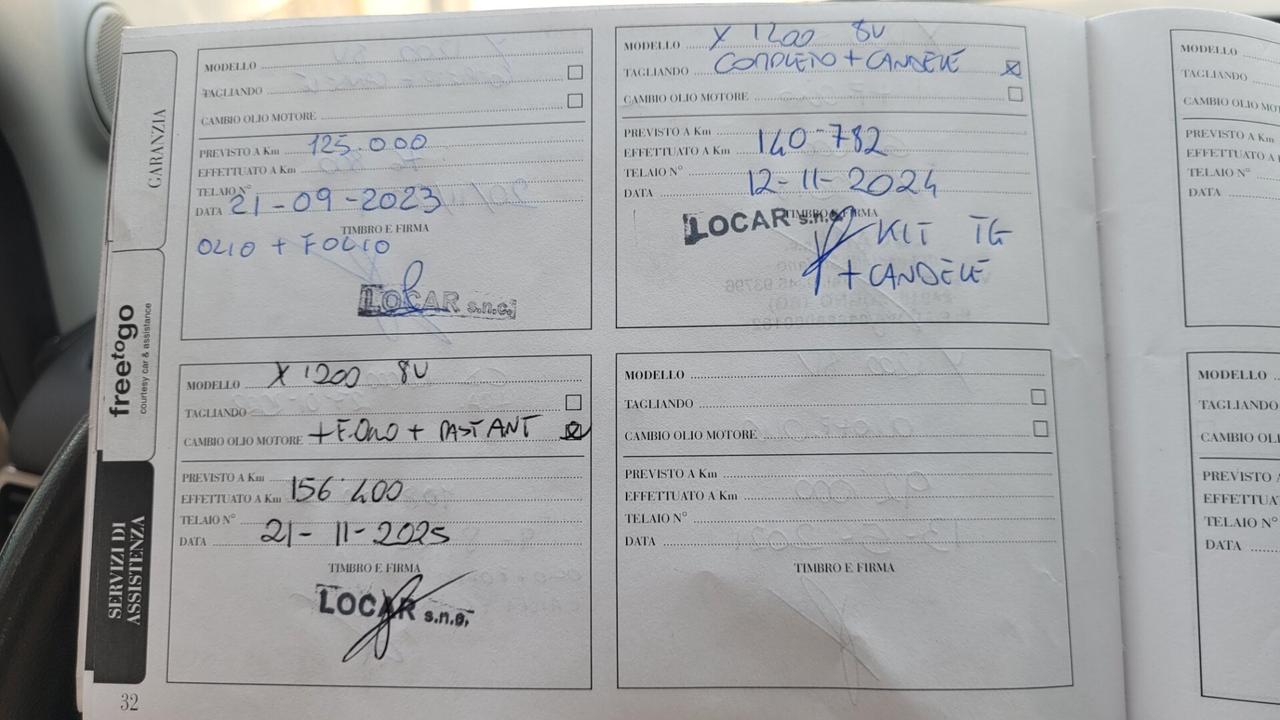 GARANZIA
freetogo
courtesy car & assistance
SERVIZI DI
ASSISTENZA
MODELLO
TAGLIANDO
CAMBIO OLIO MOTORE
PREVISTO A Km
EFFETTUATO A Km 125.000
TELAIO N°
DATA 21-09-2023
TIMBRO E FIRMA
OLIO + FOLIO
LOCAR s.n.c.
MODELLO X 1200 8V
TAGLIANDO COMPLETO + CANDELE
CAMBIO OLIO MOTORE
PREVISTO A Km
EFFETTUATO A Km 140-782
TELAIO N°
DATA 12-11-2024
TIMBRO E FIRMA
LOCAR s.n.c.
KIT TG
+ CANDELE
MODELLO X 1200 8V
TAGLIANDO
CAMBIO OLIO MOTORE + F.OLIO + PAST ANT
PREVISTO A Km
EFFETTUATO A Km 156.400
TELAIO N°
DATA 21-11-2025
TIMBRO E FIRMA
LOCAR s.n.c.
MODELLO
TAGLIANDO
CAMBIO OLIO MOTORE
PREVISTO A Km
EFFETTUATO A Km
TELAIO N°
DATA
TIMBRO E FIRMA
32
MODELLO
TAGLIANDO
CAMBIO OLIO MO
PREVISTO A K
EFFETTUATO A
TELAIO N°
DATA
MODELLO
TAGLIANDO
CAMBIO OL
PREVISTO A
EFFETTUA
TELAIO N°
DATA